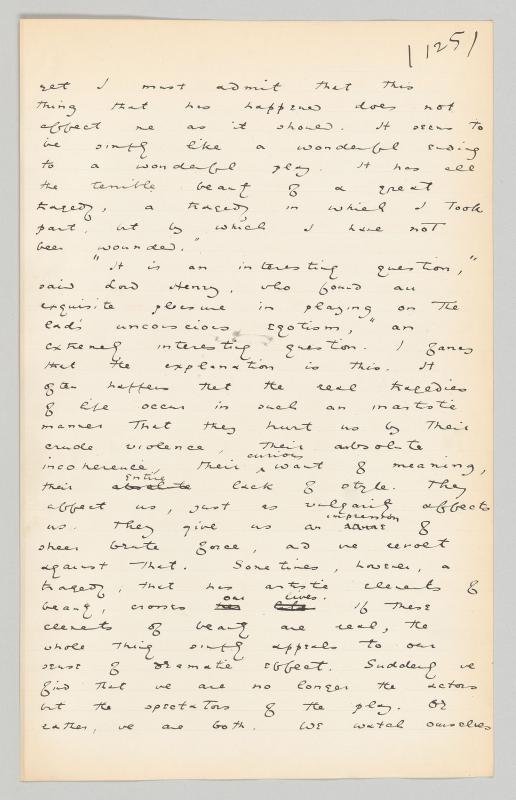 125
yet I must admit that this
thing that has happened does not
affect me as it should. It seems to
be simply like a wonderful ending
to a wonderful play. It has all
the terrible beauty of a great
tragedy, a tragedy in which I took
part, but by which I have not
been wounded."
"It is an interesting question,"
said Lord Henry, who found an
exquisite pleasure in playing on the
lad's unconscious egotism, "an
extremely interesting question. I fancy
that the explanation is this. It
often happens that the real tragedies
of life occur in such an inartistic
manner that they hurt us by their
crude violence, their absolute
incoherence, their curious want of meaning,
their absolute entire lack of style. They
affect us, just as vulgarity affects
us. They give us an impression of
sheer brute force, and we revolt
against that. Sometimes, however, a
tragedy, that has artistic elements of
beauty, crosses our lives. If these
elements of beauty are real, the
whole thing simply appeals to our
sense of dramatic effect. Suddenly we
find that we are no longer the actors
but the spectators of the play. Or
rather, we are both. We watch ourselves